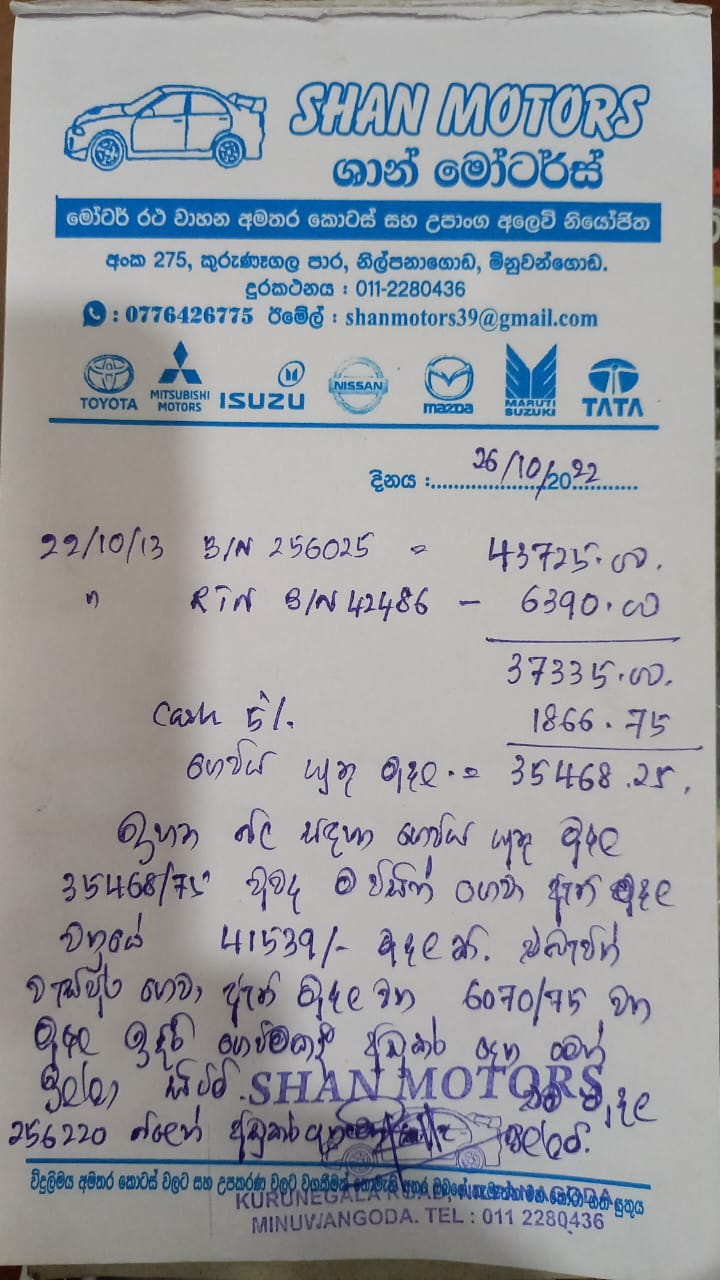 SHAN MOTORS
ශාන් මෝටර්ස්
මෝටර් රථ වාහන අමතර කොටස් සහ උපාංග අලෙවි නියෝජිත
අංක 275, කුරුණෑගල පාර, නිල්පනාගොඩ, මිනුවන්ගොඩ.
දුරකථනය : 011-2280436
: 0776426775 ඊමේල් : shanmotors39@gmail.com
TOYOTA MITSUBISHI MOTORS ISUZU NISSAN mazda MARUTI SUZUKI TATA
දිනය : 26/10/2022
22/10/13 B/N 256025 = 43725.00
" RTN B/N 42486 - 6390.00
37335.00
Cash 5% 1866.75
ගෙවිය යුතු මුදල = 35468.25
ඉහත බිල සඳහා ගෙවිය යුතු මුදල
35468/75 වුවද ම විසින් ගෙවා ඇති මුදල
වනුයේ 41539/- මුදල කි. එබැවින්
වැඩිපුර ගෙවා ඇති මුදල වන 6070/75 වන
මුදල ඉදිරි ගෙවීමකදී අඩුකර දෙන මෙන්
ඉල්ලා සිටිමි. SHAN MOTORS මුදල
256220 බිලෙන් අඩුකර
විදුලිමය අමතර කොටස් වලට සහ උපකරණ වලට වගකීමක්
KURUNEGALA ROAD,
MINUWANGODA. TEL : 011 2280436